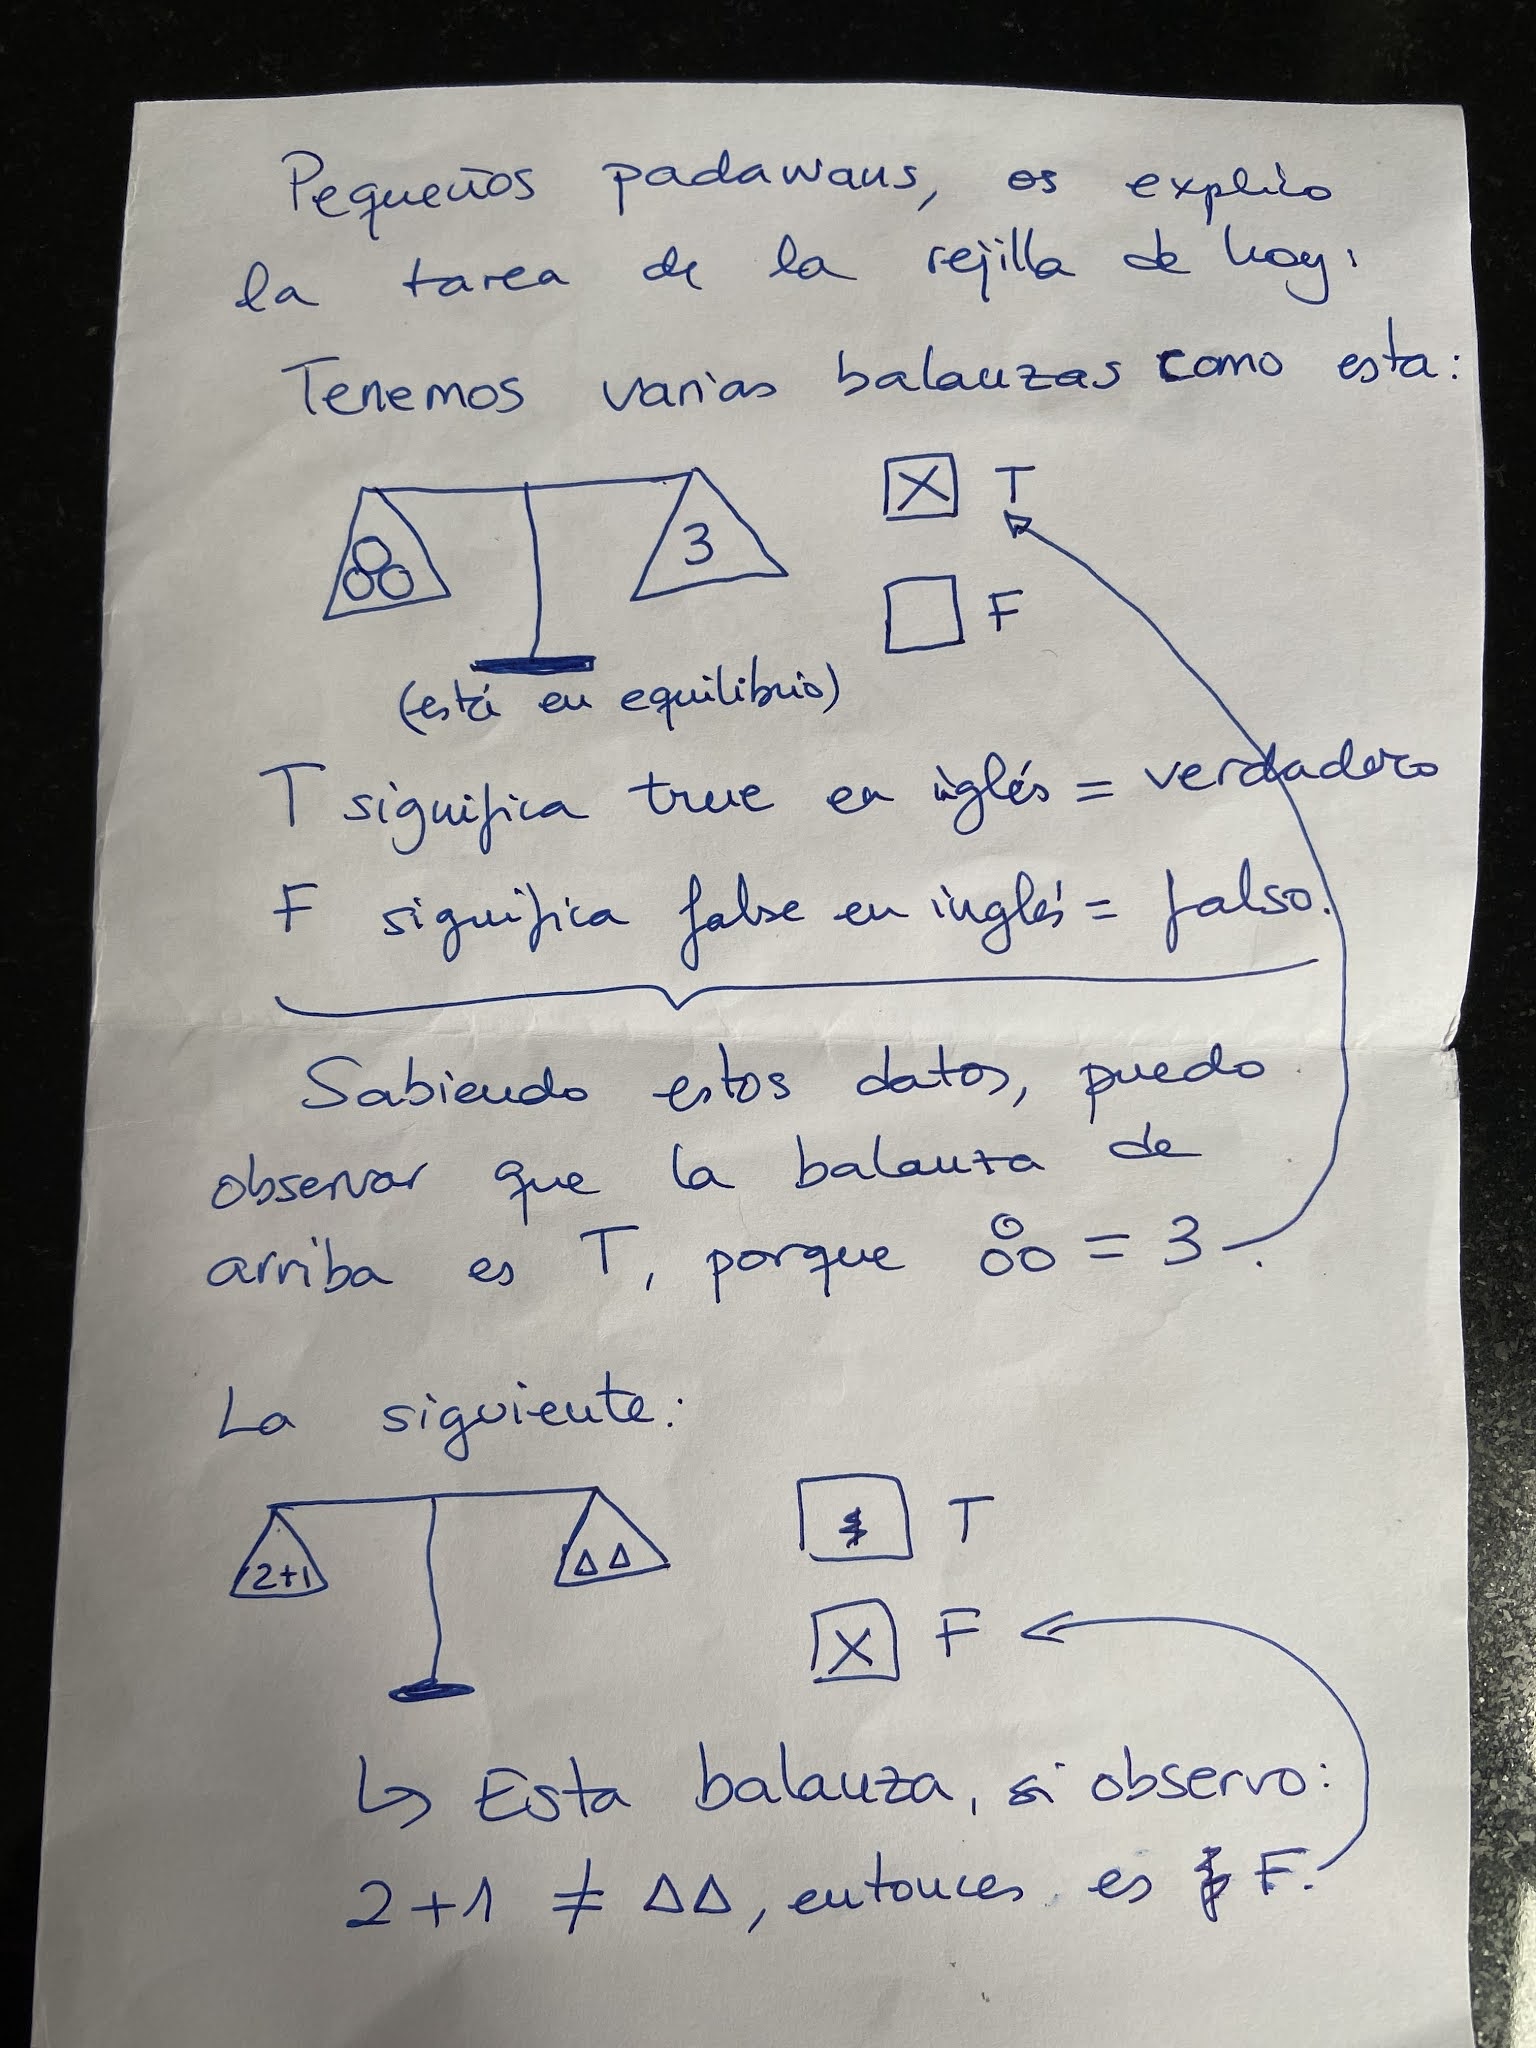 Pequeños padawans, os explico
la tarea de la rejilla de hoy:
Tenemos varias balanzas como esta:
X T
3
F
(está en equilibrio)
T significa true en inglés = verdadero
F significa false en inglés = falso.
Sabiendo estos datos, puedo
observar que la balanza de
arriba es T, porque ooo = 3.
La siguiente:
T
2+1 ΔΔ
X F
↳ Esta balanza, si observo:
2+1 ≠ ΔΔ, entonces es F.